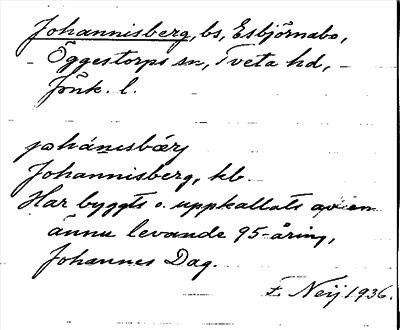 Johannisberg, bs, Esbjörnabo,
Öggestorps sn, Tveta hd,
Jönk. l.
johánisbærj
Johannisberg, kb.
Har byggts o. uppkallats av en
ännu levande 95-åring,
Johannes Dag.
E. Neij 1936.